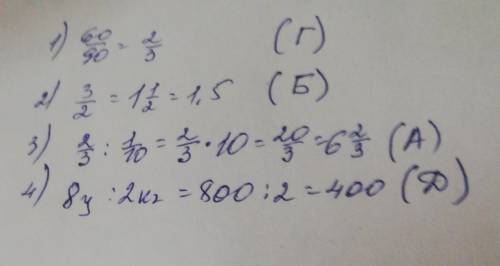 1) 60/90 = 2/3 (Г)
2) 3/2 = 1 1/2 = 1,5 (Б)
3) 2/3 : 1/10 = 2/3 · 10 = 20/3 = 6 2/3 (А)
4) 8ц : 2кг = 800 : 2 = 400 (Д)